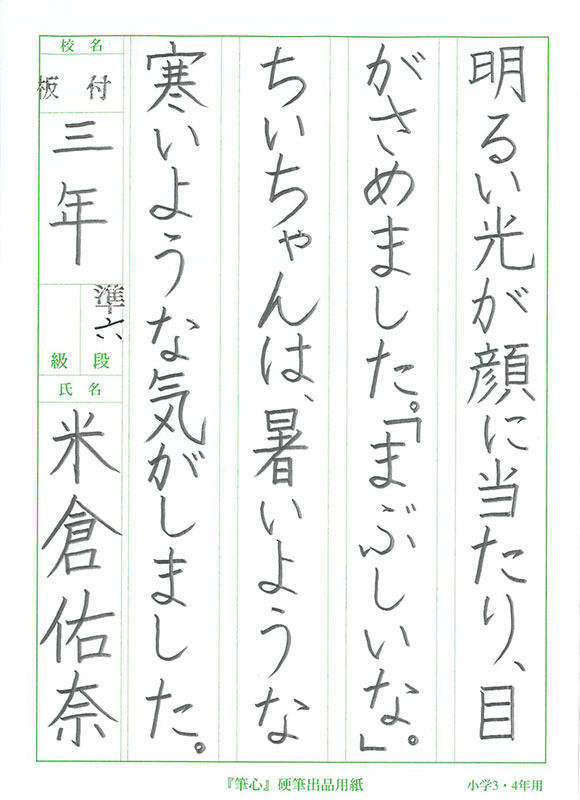 明るい光が顔に当たり、目
がさめました。「まぶしいな」。
ちいちゃんは、暑いような
寒いような気がしました。
校名
板付
三年
準六
級段
氏名
米倉佑奈
『筆心』硬筆出品用紙
小学3・4年用